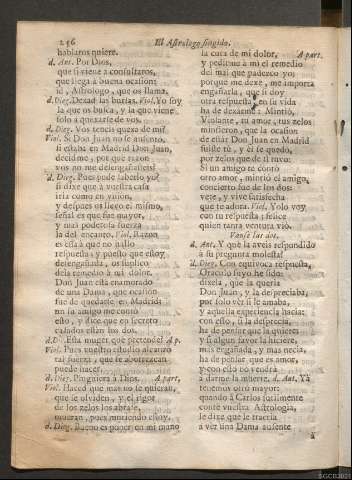 256 El Astrologo fingido.
hablaros quiere.
d. Ant. Por Dios,
que si viene a consultaros,
que llega à buena ocasion:
id, Astrologo, que os llama.
d. Dieg. Dexad las burlas. Viol. Yo soy
la que os busca, y la que viene
solo a quexarse de vos.
d. Dieg. Vos teneis quexa de mi?
Viol. Si Don Juan no se ausentó,
si estaba en Madrid Don Juan,
decidme, por què razon
vos no me desengañasteis?
d. Dieg. Pues pude saberlo yo?
si dixe que à vuestra casa
iria como en vision,
y despues os llegó el mismo,
señal es que fue mayor,
y mas poderosa fuerza
la del encanto. Viol. Razon
es essa à que no hallo
respuesta; y puesto que estoy
desengañada, os suplico
deis remedio à mi dolor.
Don Juan està enamorado
de una Dama, que ocasion
fue de quedarse en Madrid;
un su amigo me contó
esto, y dice que en secreto
casados están los dos.
d. D. Esta muger que pretende? A p.
Viol. Pues vuestro estudio alcanzó
tal fuerza, que se aborrezcan
puede hacer.
d. Dieg. Pluguiera à Dios. A part.
Viol. Haced que mas no se quieran,
que se olviden, y el rigor
de los zelos los abrase,
mueran, pues muriendo estoy.
d. Dieg. Bueno es poner en mi mano
la cura de mi dolor, A part.
y pedirme à mi el remedio
del mal que padezco yo:
porque me dexe, me importa
engañarla, que si doy
otra respuesta, en su vida
ha de dexarme: Mintió,
Violante, tu amor, tus zelos
mintieron, que la ocasion
de estàr Don Juan en Madrid
fuiste tù, y èl se quedó,
por zelos que de ti tuvo:
Si un amigo te contó
otro amor, mintió el amigo,
concierto fue de los dos:
vete, y vive satisfecha
que te adora. Viol. Yo lo voy
con tu respuesta; felice
quien tanta ventura vió.
Vanse las dos.
d. Ant. Y què la aveis respondido
à su pregunta molesta?
d. Dieg. Con equivoca respuesta,
Oraculo suyo he sido:
dixela, que la queria
Don Juan, y la despreciaba,
por solo vèr si le amaba,
y aquella experiencia hacia:
con esto, si la desprecia,
ha de pensar que la quiere;
y si algun favor la hiciere,
mas engañada, y mas necia,
ha de pensar que es amor,
y con esto no vendrà
à darme la muerte. d. Ant. Yà
tenemos otro mayor:
quando à Carlos sutilmente
contè vuestra Astrologia,
le dixe que le traeria
à vèr una Dama ausente
à